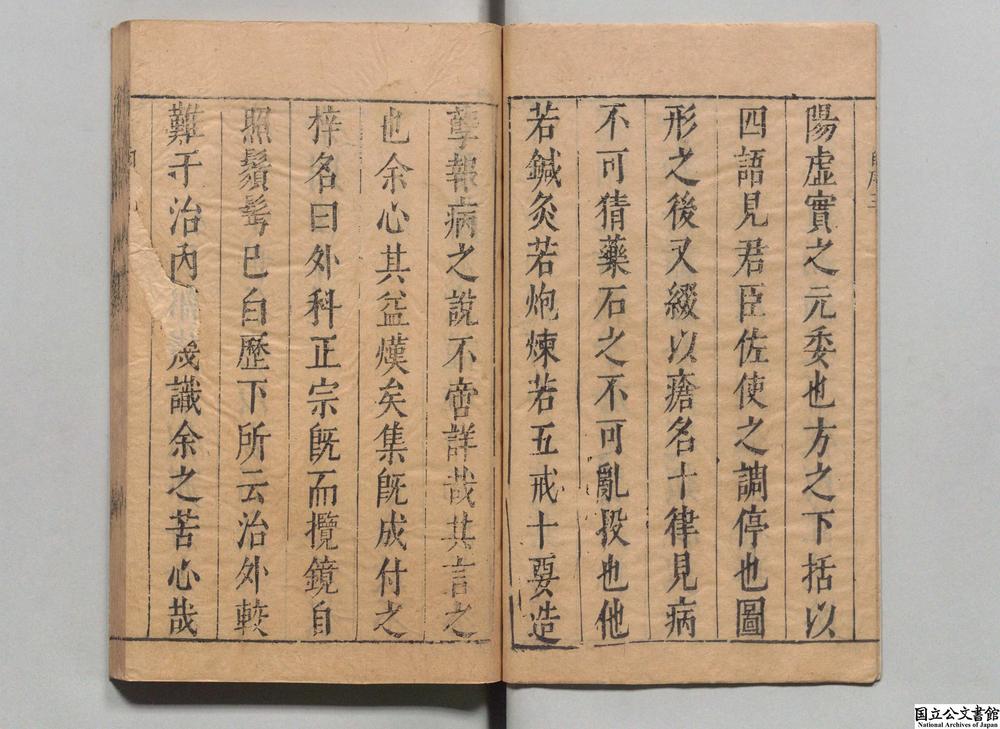 陽虛實之元委也方之下括以
四語見君臣佐使之調停也圖
形之後又綴以瘡名十律見病
不可猜藥石之不可亂投也他
若鍼灸若炮煉若五戒十要造
孽報病之說不啻詳哉其言之
也余心其益熯矣集既成付之
梓名曰外科正宗既而攬鏡自
照鬚髩已白歷下所云治外較
難于治內識余之苦心哉
国立公文書館
National Archives of Japan